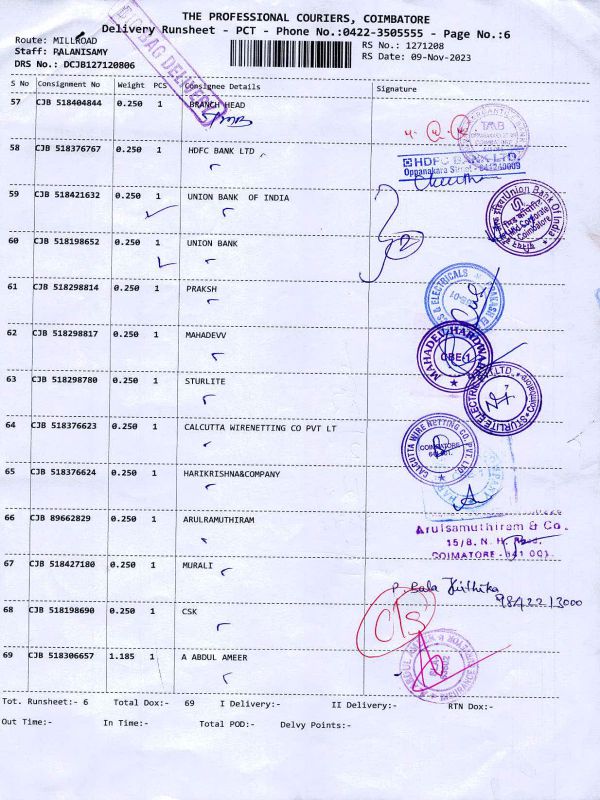 THE PROFESSIONAL COURIERS, COIMBATORE
Delivery Runsheet - PCT - Phone No.:0422-3505555 - Page No.:6
Route: MILLROAD
RS No.: 1271208
Staff: PALANISAMY
RS Date: 09-Nov-2023
DRS No.: DCJB127120806
BAG DELIVERY
S No Consignment No Weight PCS Consignee Details Signature
57 CJB 518404844 0.250 1 BRANCH HEAD
TMB
58 CJB 518376767 0.250 1 HDFC BANK LTD
HDFC BANK LTD.
Oppanakara Street - 641260009
59 CJB 518421632 0.250 1 UNION BANK OF INDIA
Union Bank Of India
Mid Corporate
Coimbatore
60 CJB 518198652 0.250 1 UNION BANK
61 CJB 518298814 0.250 1 PRAKSH
& ELECTRICALS
62 CJB 518298817 0.250 1 MAHADEVV
MAHADEV HARDWARE
CBE-1
63 CJB 518298780 0.250 1 STURLITE
STURLITE ELECTRIC PVT. LTD. Coimbatore
64 CJB 518376623 0.250 1 CALCUTTA WIRENETTING CO PVT LT
CALCUTTA WIRE NETTING CO. PVT. LTD.
COIMBATORE
65 CJB 518376624 0.250 1 HARIKRISHNA&COMPANY
66 CJB 89662829 0.250 1 ARULRAMUTHIRAM
Arulsamuthiram & Co.
15/8, N. H. Road,
COIMATORE - 641 001.
67 CJB 518427180 0.250 1 MURALI
P. Bala Kirthika
98422 13000
68 CJB 518198690 0.250 1 CSK
69 CJB 518306657 1.185 1 A ABDUL AMEER
Tot. Runsheet:- 6 Total Dox:- 69 I Delivery:- II Delivery:- RTN Dox:-
Out Time:- In Time:- Total POD:- Delvy Points:-